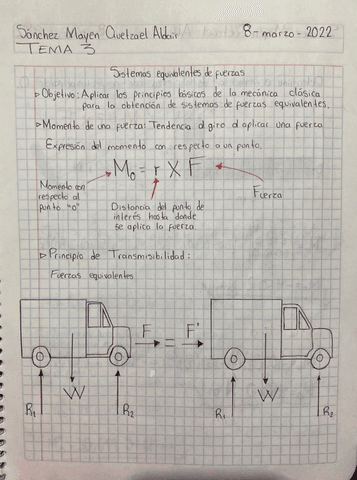 Sánchez Mayen Quetzael Aldair 8-marzo-2022
TEMA 3
Sistemas equivalentes de fuerzas
▷ Objetivo: Aplicar los principios básicos de la mecánica clásica
para la obtención de sistemas de fuerzas equivalentes.
▷ Momento de una fuerza: Tendencia al giro al aplicar una fuerza
Expresión del momento con respecto a un punto.
Mo = r X F
Momento con
respecto al
punto "o"
Distancia del punto de
interés hasta donde
se aplica la fuerza.
Fuerza
▷ Principio de Transmisibilidad:
Fuerzas equivalentes
F = F'
W W
R1 R2 R1 R2